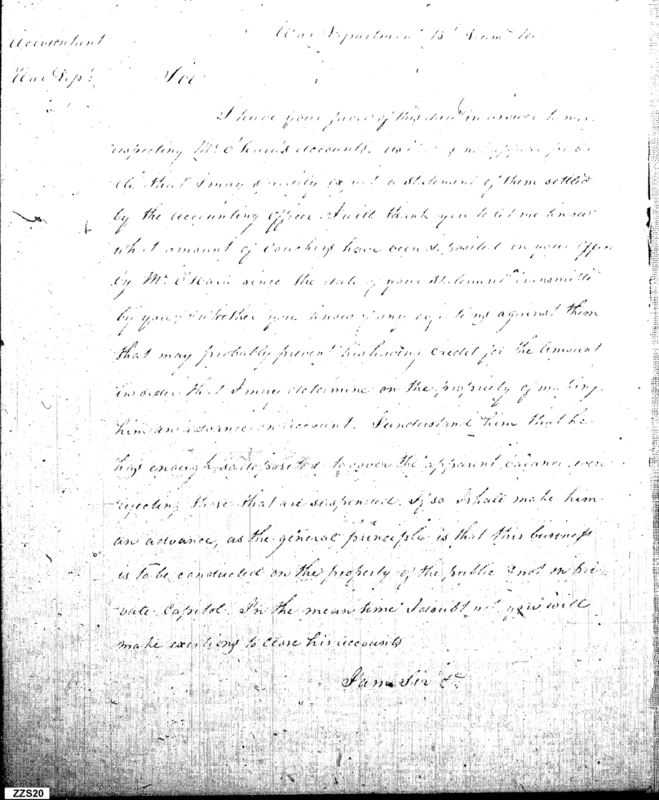 War Department
Accountant
War Dep.t
Sir
I have your favor of this date in answer to mine
respecting Mr. O'Hara's accounts, as
that I may speedily expect a statement of them settled
by the accounting officer I will thank you to let me know
what amount of vouchers have been deposited in your office
by Mr. O'Hara since the date of your statement transmitted
by you, & whether you know of any objections against them
that may probably prevent his having credit for the Amount
in order that I may determine on the propriety of making
him an advance on account. I understand him that he
has enough so deposited to cover the apparent balance even
rejecting those that are suspended. If so I shall make him
an advance, as the general principle is that this business
is to be conducted on the property of the public & not on pri
vate Capitol. In the mean time I doubt not you will
make exertions to close his accounts
I am Sir &c.
ZZS20